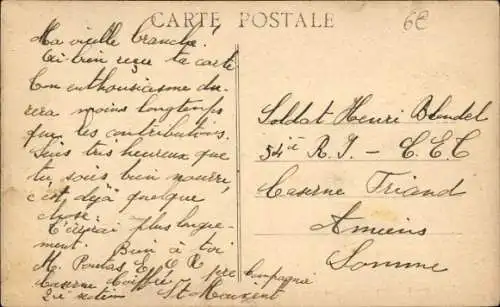 CARTE POSTALE
6€
Ma vieille branche!
Ai bien reçu ta carte
Ton enthousiasme du-
rera moins longtemps
que les contributions.
Suis très heureux que
tu sois bien nourri,
c'est déjà quelque
chose.
T'écrirai plus longue-
ment. Bien à toi
M. Poutas E.E.O.R 1ère Compagnie
Caserne Coiffé
2è section St Maixent
Soldat Henri Blondel
54è R.I - C.E.C
Caserne Friand
Amiens
Somme